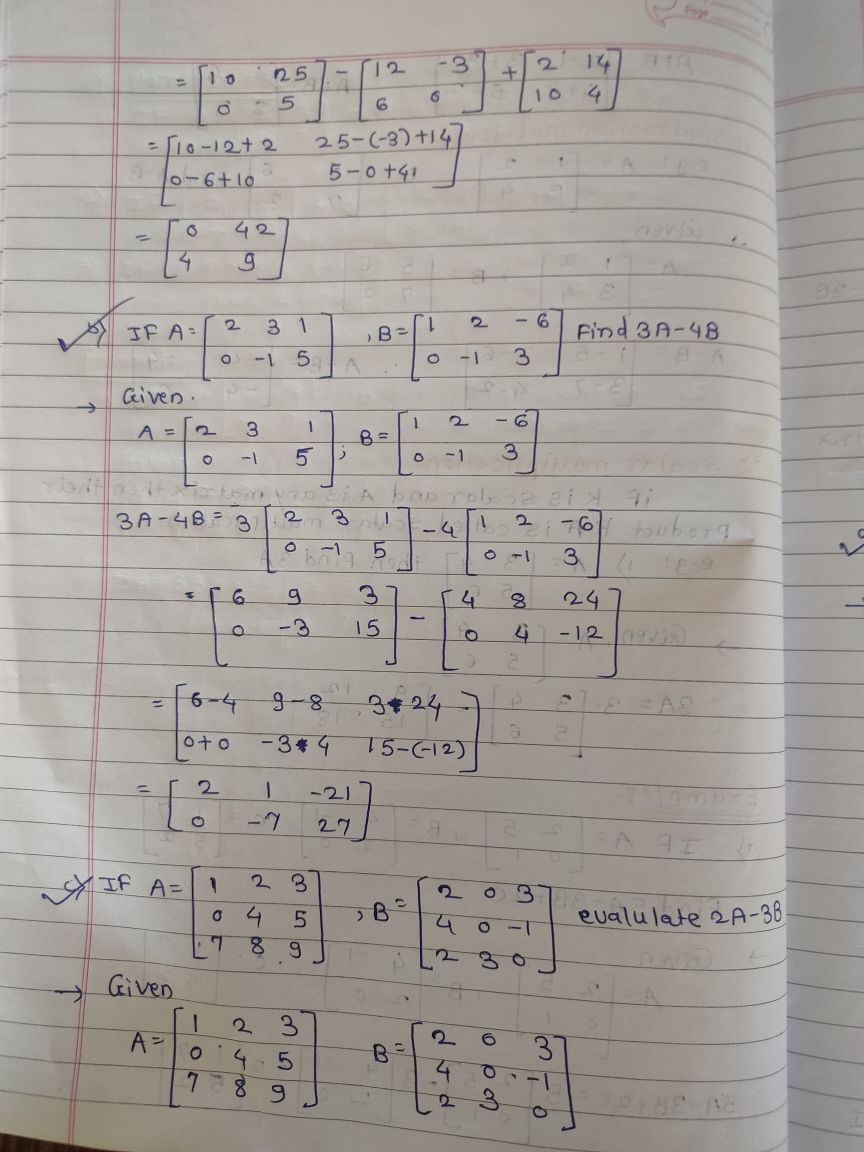 = [10 25 0 5] - [12 -3 6 0] + [2 14 10 4]
= [10-12+2 25-(-3)+14 0-6+10 5-0+4]
= [0 42 4 9]
b) IF A = [2 3 1 0 -1 5] , B = [1 2 -6 0 -1 3] Find 3A-4B
→ Given.
A = [2 3 1 0 -1 5] ; B = [1 2 -6 0 -1 3]
3A-4B = 3 [2 3 1 0 -1 5] - 4 [1 2 -6 0 -1 3]
= [6 9 3 0 -3 15] - [4 8 24 0 4 -12]
= [6-4 9-8 3-24 0+0 -3-4 15-(-12)]
= [2 1 -21 0 -7 27]
c) IF A = [1 2 3 0 4 5 7 8 9] , B = [2 0 3 4 0 -1 2 3 0] evalulate 2A-3B
→ Given
A = [1 2 3 0 4 5 7 8 9] B = [2 0 3 4 0 -1 2 3 0]